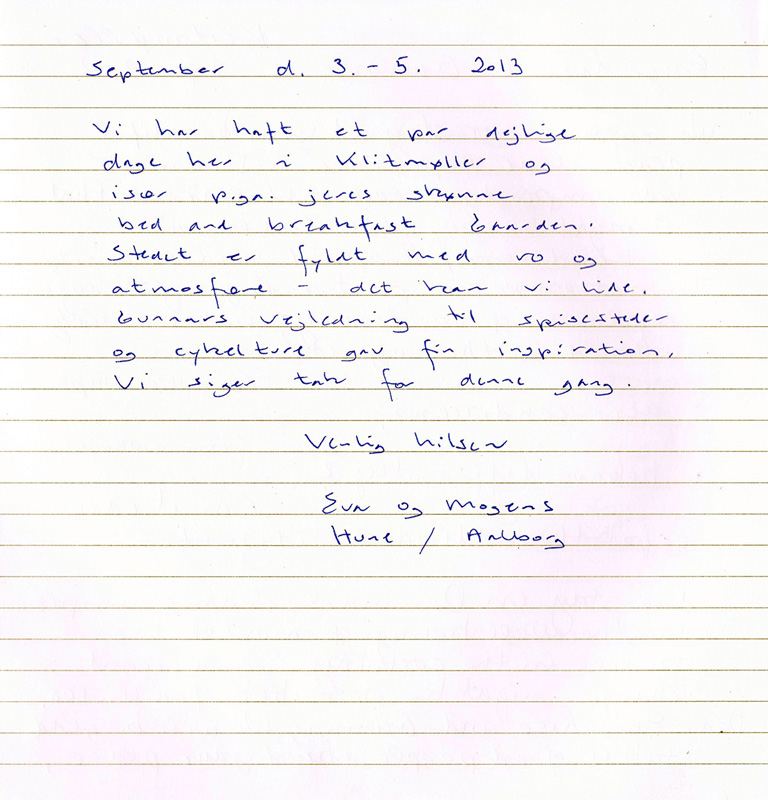 September d. 3. - 5. 2013
Vi har haft et par dejlige
dage her i Klitmøller og
især p.gr. jeres skønne
bed and breakfast Gaarden.
Stedet er fyldt med ro og
atmosfære - det kan vi lide.
Gunnars vejledning til spisesteder
og cykelture gav fin inspiration.
Vi siger tak for denne gang.
Venlig hilsen
Eva og Mogens
Hune / Aalborg